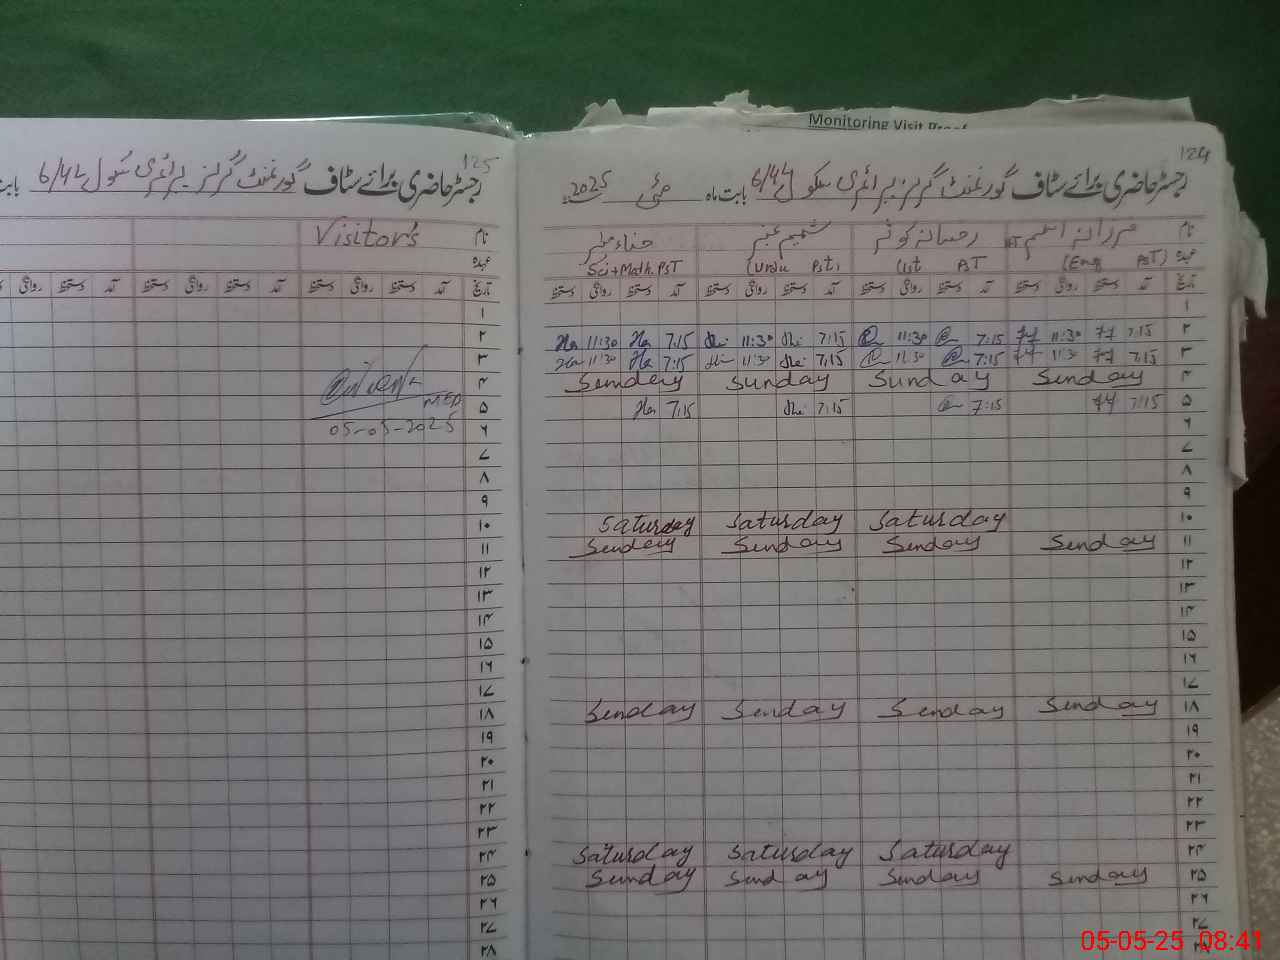 Monitoring Visit Proof
125
رجسٹر حاضری برائے سٹاف گورنمنٹ گرلز پرائمری سکول 6/4L
Visitor's
نام
عہدہ
تاریخ آمد دستخط روانگی دستخط آمد دستخط روانگی دستخط آمد
۱
۲
۳
۴
۵
MED
05-05-2025
۶
۷
۸
۹
۱۰
۱۱
۱۲
۱۳
۱۴
۱۵
۱۶
۱۷
۱۸
۱۹
۲۰
۲۱
۲۲
۲۳
۲۴
۲۵
۲۶
۲۷
۲۸
124
رجسٹر حاضری برائے سٹاف گورنمنٹ گرلز پرائمری سکول 6/4L بابت ماہ مئی 2025
نام رخسانہ کوثر شمیم عنبر
عہدہ (Eng PST) (Ist PST (Urdu PST) Sci+Math.PST
تاریخ آمد دستخط روانگی دستخط آمد دستخط روانگی دستخط آمد دستخط روانگی دستخط آمد دستخط روانگی دستخط
۱
11:30 7:15 11:30 7:15 11:30 7:15 11:30 7:15 ۲
11:30 7:15 11:30 7:15 11:30 7:15 11:30 7:15 ۳
Sunday Sunday Sunday Sunday ۴
7:15 7:15 7:15 7:15 ۵
۶
۷
۸
۹
Saturday Saturday Saturday ۱۰
Sunday Sunday Sunday Sunday ۱۱
۱۲
۱۳
۱۴
۱۵
۱۶
۱۷
Sunday Sunday Sunday Sunday ۱۸
۱۹
۲۰
۲۱
۲۲
۲۳
Saturday Saturday Saturday ۲۴
Sunday Sunday Sunday Sunday ۲۵
۲۶
۲۷
05-05-25 08:41